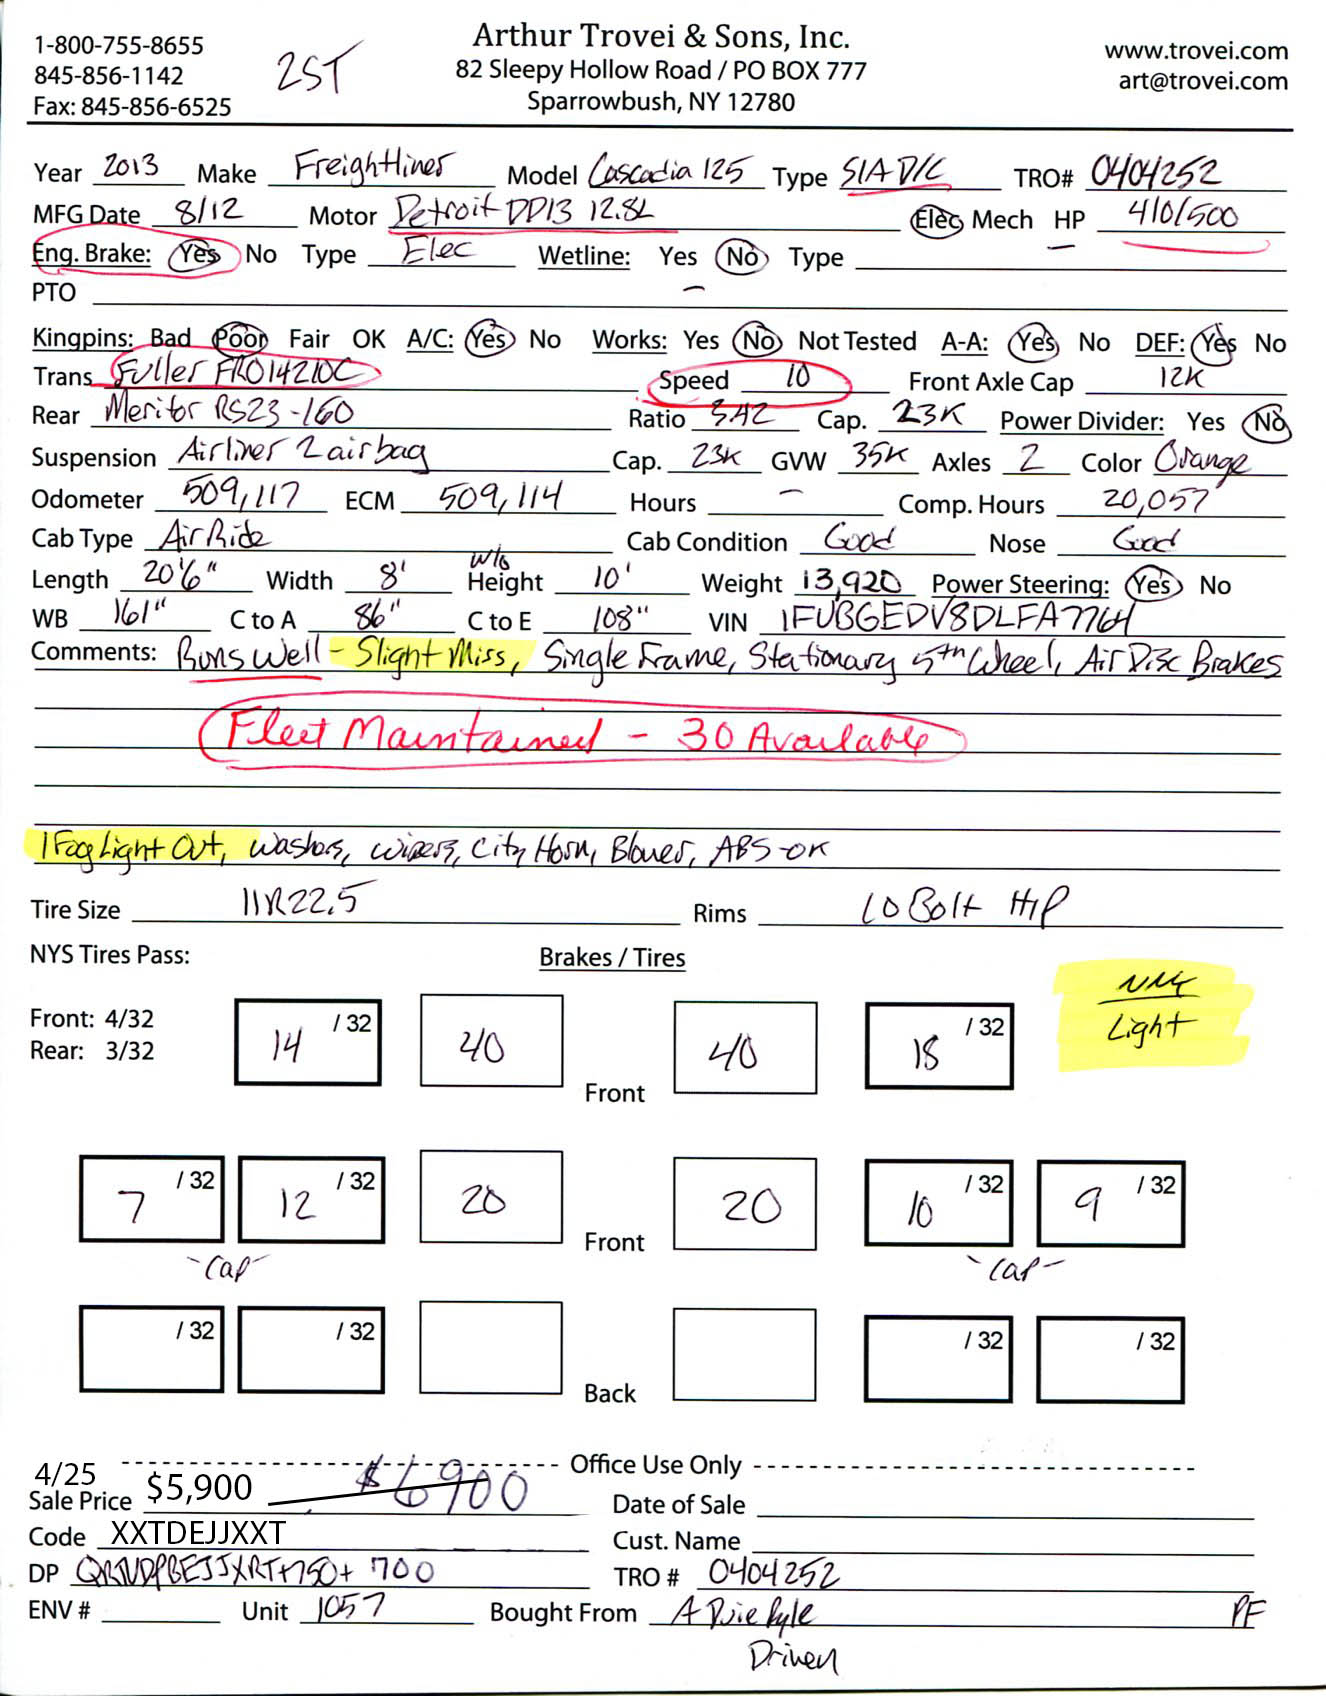 1-800-755-8655
845-856-1142
Fax: 845-856-6525
2ST
Arthur Trovei & Sons, Inc.
82 Sleepy Hollow Road / PO BOX 777
Sparrowbush, NY 12780
www.trovei.com
art@trovei.com
Year 2013 Make Freightliner Model Cascadia 125 Type S/A D/C TRO# 0404252
MFG Date 8/12 Motor Detroit DD13 12.8L Elec Mech HP 410/500
Eng. Brake: Yes No Type Elec Wetline: Yes No Type
PTO
Kingpins: Bad Poor Fair OK A/C: Yes No Works: Yes No Not Tested A-A: Yes No DEF: Yes No
Trans Fuller FRO14210C Speed 10 Front Axle Cap 12K
Rear Meritor RS23-160 Ratio 3.42 Cap. 23K Power Divider: Yes No
Suspension Airliner 2 airbag Cap. 23K GVW 35K Axles 2 Color Orange
Odometer 509,117 ECM 509,114 Hours – Comp. Hours 20,057
Cab Type Air Ride Cab Condition Good Nose Good
Length 20'6" Width 8' w/o Height 10' Weight 13,920 Power Steering: Yes No
WB 161" C to A 86" C to E 108" VIN 1FUBGEDV8DLFA7764
Comments: Runs Well - Slight Miss, Single Frame, Stationary 5th Wheel, Air Disc Brakes
Fleet Maintained - 30 Available
1 Fog Light Out, Washers, Wipers, City Horn, Blower, ABS-OK
Tire Size 11R22.5 Rims 10 Bolt H/P
NYS Tires Pass: Brakes / Tires
Front: 4/32
Rear: 3/32
14 /32 40 Front 40 18 /32
Light
7 /32 12 /32 20 Front 20 10 /32 9 /32
-Cap- -Cap-
/32 /32 Back /32 /32
Office Use Only
4/25
Sale Price $5,900 $6900 Date of Sale
Code XXTDEJJXXT Cust. Name
DP +750+ 700 TRO # 0404252
ENV # Unit 1057 Bought From A Duie Pyle PF
Driven